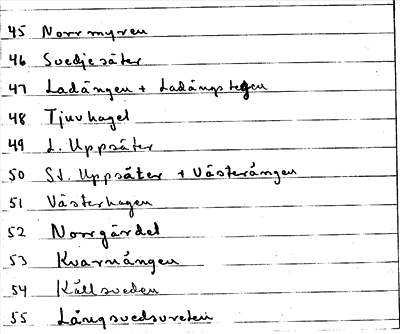 45 Norrmyren
46 Svedjesäter
47 Ladängen + Ladängstegen
48 Tjuvhagel
49 L. Uppsäter
50 St. Uppsäter + Västerängen
51 Västerhagen
52 Norrgärdet
53 Kvarnängen
54 Källsveden
55 Långsvedsvreten